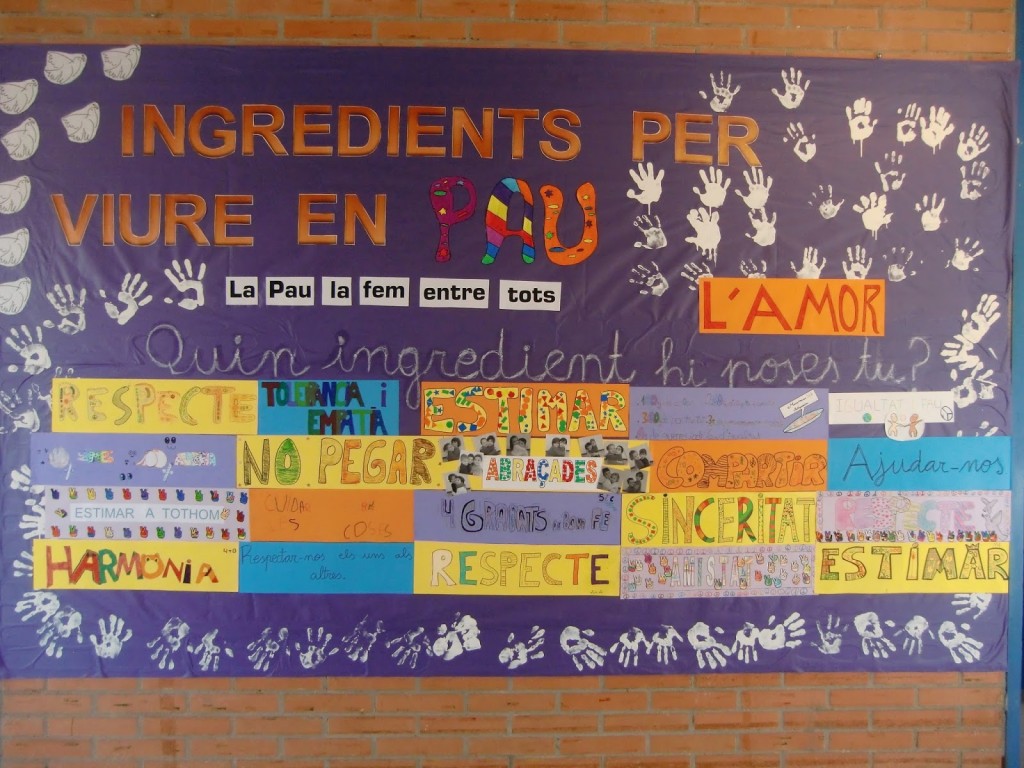 INGREDIENTS PER
VIURE EN PAU
La Pau la fem entre tots
L'AMOR
Quin ingredient hi poses tu?
RESPECTE
TOLERÀNCIA i
EMPATÀ
ESTIMAR
IGUALTAT i PAU
NO PEGAR
ABRAÇADES
COMPARTIR
Ajudar-nos
ESTIMAR A TOTHOM
CUIDAR
COSES
4 GRANETS de bona FE
SINCERITAT
RESPECTE
HARMÒNIA
Respectar-nos els uns als
altres.
RESPECTE
ESTIMAR